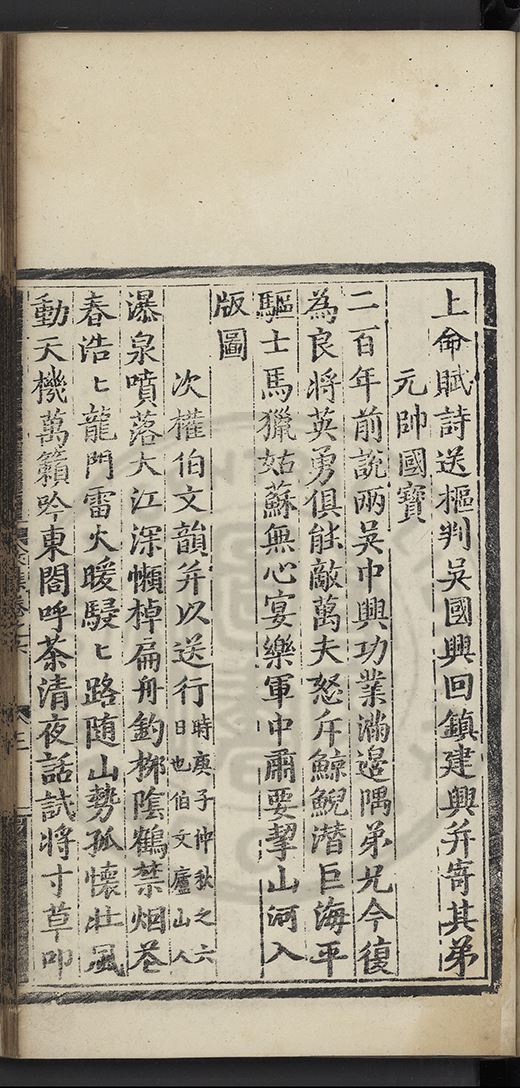 上命賦詩送樞判吳國興回鎮建興并寄其弟
元帥國寶
二百年前說兩吳中興功業滿邊隅弟兄今復
為良將英勇俱能敵萬夫怒斥鯨鯢潛巨海平
驅士馬獵姑蘇無心宴樂軍中肅要挈山河入
版圖
次權伯文韻并以送行時庚子仲秋之六
日也伯文廬山人
瀑泉噴落大江深懶棹扁舟釣栁陰鶴禁烟花
春浩〻龍門雷火暖駸〻路随山勢孤懷壯風
動天機萬籟吟東閣呼茶清夜話試將寸草叩